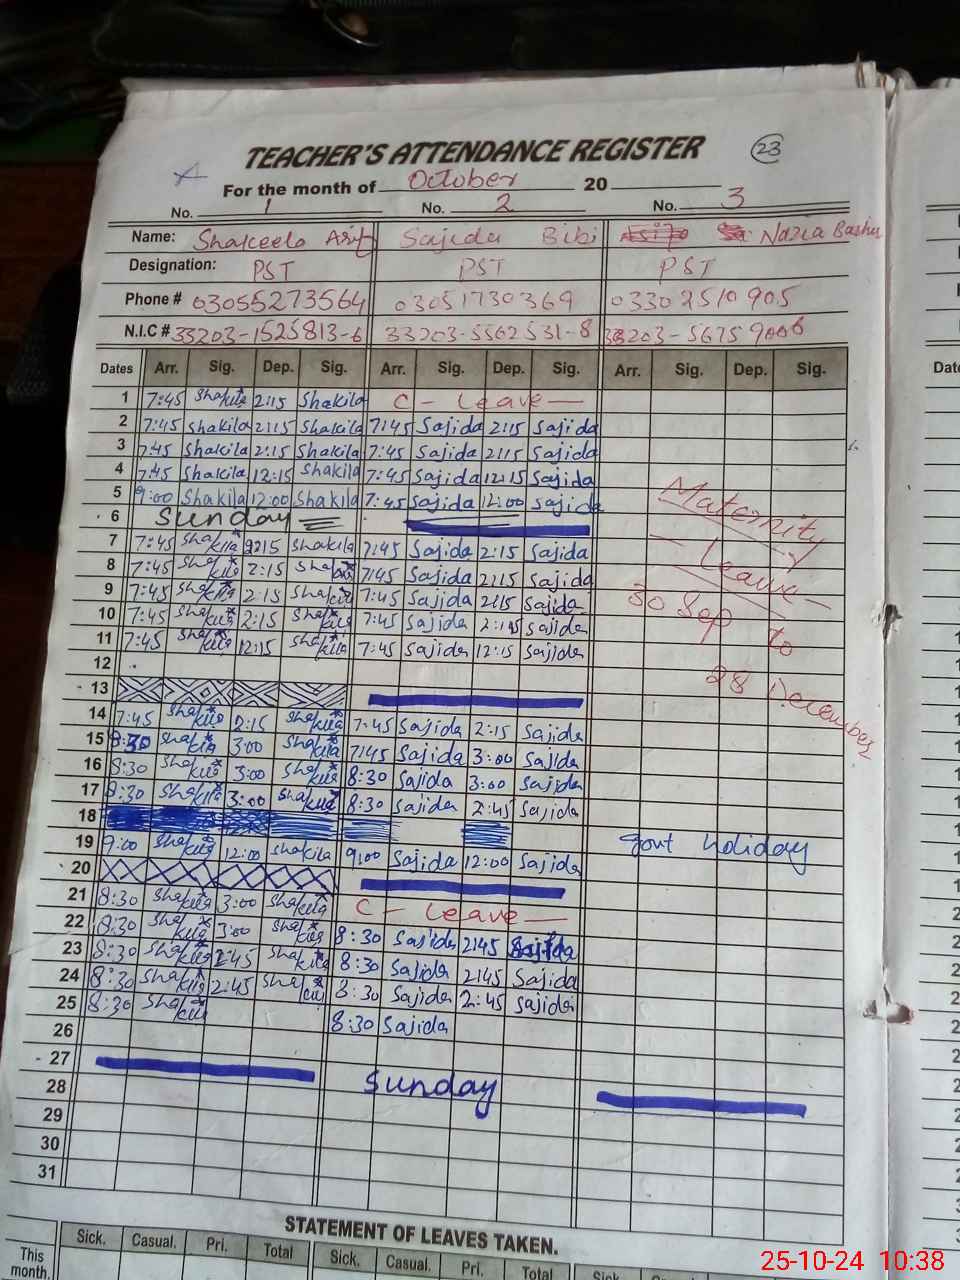 TEACHER'S ATTENDANCE REGISTER 23
For the month of October 20
No. 1 No. 2 No. 3
Name: Shakeela Arif Sajida Bibi Nazia Bashir
Designation: PST PST PST
Phone # 03055273564 03051730369 03302510905
N.I.C # 33203-1525813-6 33203-5562531-8
Dates Arr. Sig. Dep. Sig. Arr. Sig. Dep. Sig. Arr. Sig. Dep. Sig.
1 7:45 Shakila 2:15 Shakila C - Leave —
2 7:45 Shakila 2:15 Shakila 7:45 Sajida 2:15 Sajida
3 7:45 Shakila 2:15 Shakila 7:45 Sajida 2:15 Sajida
4 7:45 Shakila 12:15 Shakila 7:45 Sajida 12:15 Sajida
5 9:00 Shakila 12:00 Shakila 7:45 Sajida 12:00 Sajida
6 Sunday
7 7:45 Shakila 2:15 Shakila 7:45 Sajida 2:15 Sajida
8 7:45 Shakila 2:15 Shakila 7:45 Sajida 2:15 Sajida
9 7:45 Shakila 2:15 Shakila 7:45 Sajida 2:15 Sajida
10 7:45 Shakila 2:15 Shakila 7:45 Sajida 2:15 Sajida
11 7:45 Shakila 12:15 Shakila 7:45 Sajida 12:15 Sajida
Maternity
— Leave —
30 Sep to
28 December
12
13
14 7:45 Shakila 2:15 Shakila 7:45 Sajida 2:15 Sajida
15 8:30 Shakila 3:00 Shakila 7:45 Sajida 3:00 Sajida
16 8:30 Shakila 3:00 Shakila 8:30 Sajida 3:00 Sajida
17 8:30 Shakila 3:00 Shakila 8:30 Sajida 2:45 Sajida
18 Govt holiday
19 9:00 Shakila 12:00 Shakila 9:00 Sajida 12:00 Sajida
20
21 8:30 Shakila 3:00 Shakila C - Leave —
22 8:30 Shakila 3:00 Shakila 8:30 Sajida 2:45 Sajida
23 8:30 Shakila 2:45 Shakila 8:30 Sajida 2:45 Sajida
24 8:30 Shakila 2:45 Shakila 8:30 Sajida 2:45 Sajida
25 8:30 Shakila 8:30 Sajida
26
27 Sunday
28
29
30
31
STATEMENT OF LEAVES TAKEN.
Sick. Casual. Pri. Total Sick. Casual. Pri. Total Sick. Casual. Pri.
This month.
25-10-24 10:38